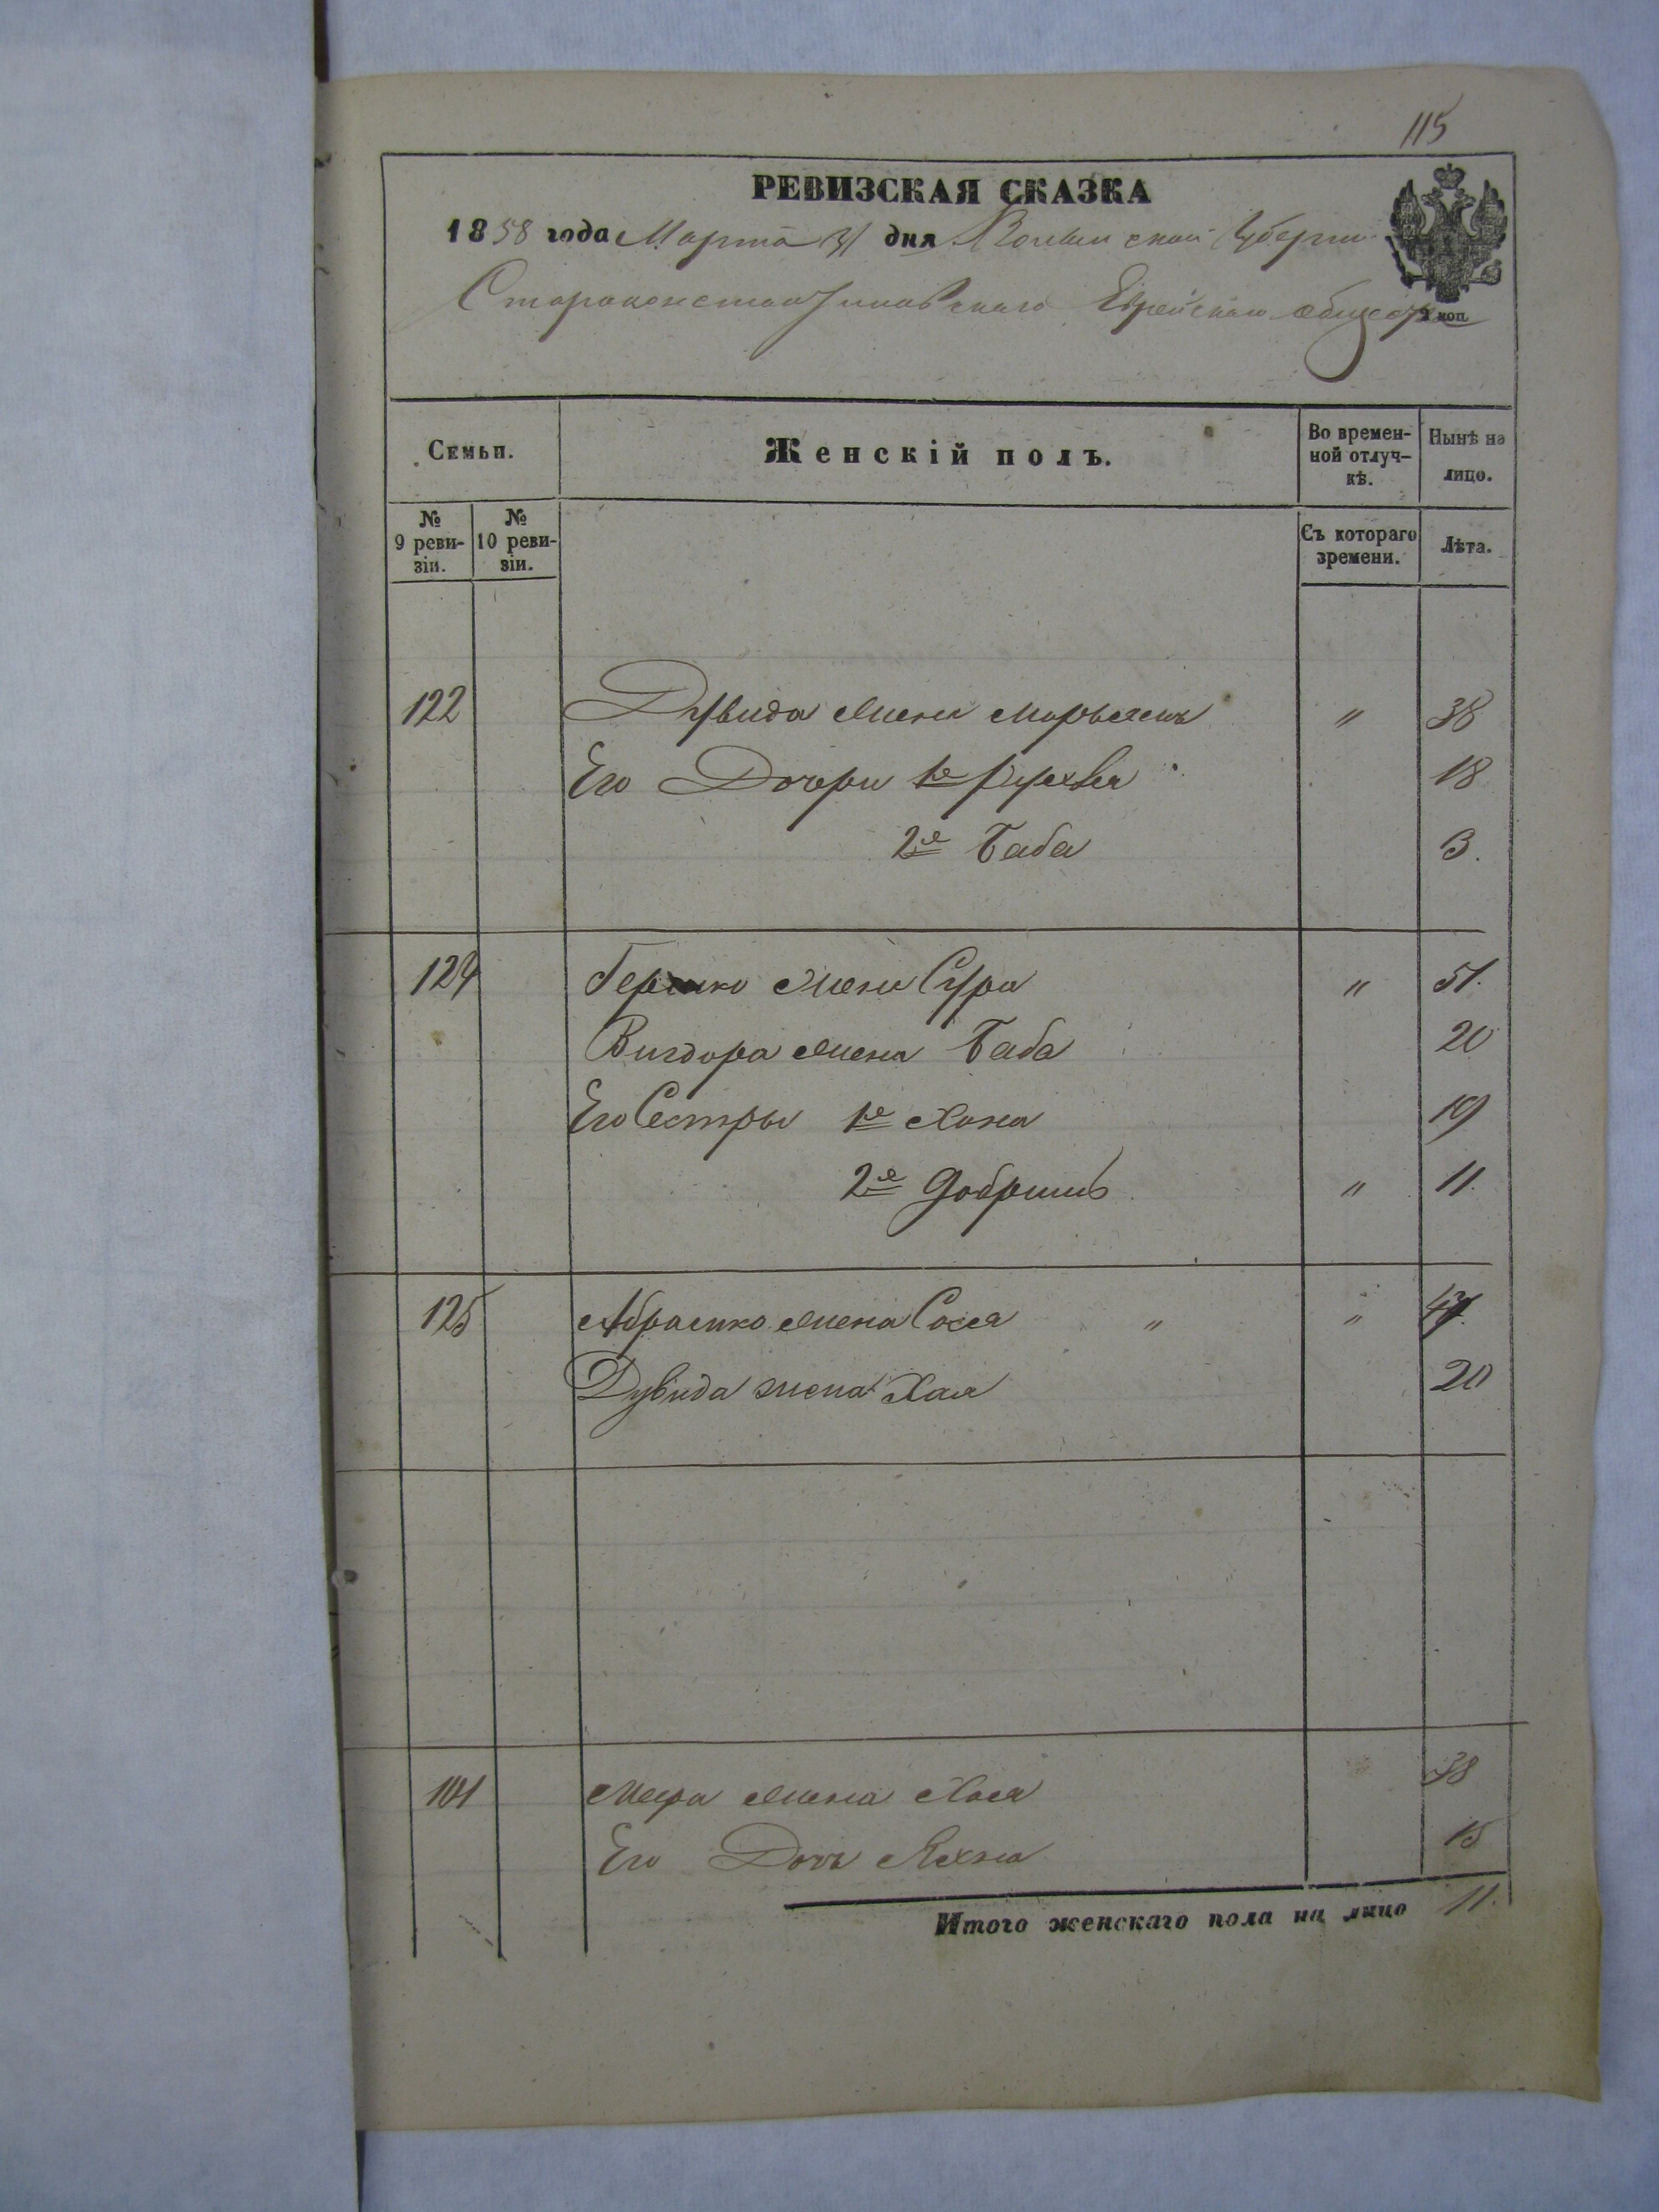 115
РЕВИЗСКАЯ СКАЗКА
1858 года Марта 31 дня Волынской Губернии
Староконстантиновскаго Еврейскаго общества
2 коп.
Семьи. Женскій полъ. Во времен-ной отлуч-кѣ. Нынѣ на лицо.
№ 9 реви-зіи. № 10 реви-зіи. Съ котораго времени. Лѣта.
122 Дувида жена Марьясъ " 38
Его Дочери 1я Рухля 18
2я Баба 3.
124 Гершко жена Сура " 51.
Вигдора жена Баба 20
Его Сестры 1я Хана 19
2я Добришъ " 11.
125 Абрамко жена Сося " "
Дувида жена Хая 20
101 жена Хая 38
Его Дочь Яхна 15
Итого женскаго пола на лицо 11.